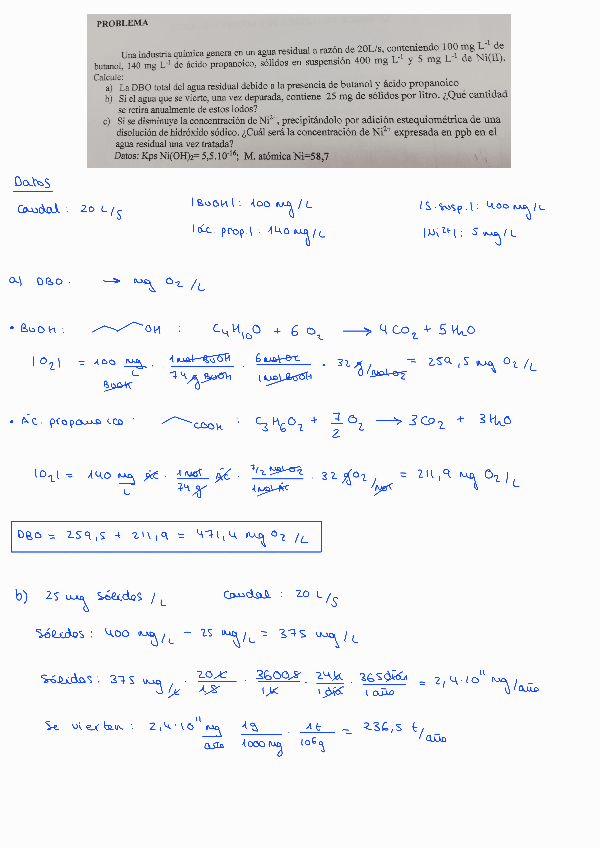 PROBLEMA
Una industria química genera en un agua residual a razón de 20L/s, conteniendo 100 mg L⁻¹ de
butanol, 140 mg L⁻¹ de ácido propanoico, sólidos en suspensión 400 mg L⁻¹ y 5 mg L⁻¹ de Ni(II).
Calcule:
a) La DBO total del agua residual debido a la presencia de butanol y ácido propanoico
b) Si el agua que se vierte, una vez depurada, contiene 25 mg de sólidos por litro. ¿Qué cantidad
se retira anualmente de estos lodos?
c) Si se disminuye la concentración de Ni²⁺, precipitándolo por adición estequiométrica de una
disolución de hidróxido sódico. ¿Cuál será la concentración de Ni²⁺ expresada en ppb en el
agua residual una vez tratada?
Datos: Kps Ni(OH)₂= 5,5.10⁻¹⁶; M. atómica Ni=58,7
Datos
Caudal: 20 L/s |BuOH|: 100 mg/L |S.susp.|: 400 mg/L
|ác. prop.|: 140 mg/L |Ni²⁺|: 5 mg/L
a) DBO: → mg O₂/L
• BuOH: OH : C₄H₁₀O + 6 O₂ → 4 CO₂ + 5 H₂O
|O₂| = 100 mg/L BuOH · 1 mol BuOH/74 g BuOH · 6 mol O₂/1 mol BuOH · 32 g/mol O₂ = 259,5 mg O₂/L
• Ác. propanoico: COOH : C₃H₆O₂ + 7/2 O₂ → 3 CO₂ + 3 H₂O
|O₂| = 140 mg/L ác · 1 mol/74 g ác · 7/2 mol O₂/1 mol ác · 32 g O₂/mol = 211,9 mg O₂/L
DBO = 259,5 + 211,9 = 471,4 mg O₂/L
b) 25 mg sólidos/L Caudal: 20 L/s
Sólidos: 400 mg/L - 25 mg/L = 375 mg/L
Sólidos: 375 mg/L · 20 L/1 s · 3600 s/1 h · 24 h/1 día · 365 días/1 año = 2,4·10¹¹ mg/año
Se vierten: 2,4·10¹¹ mg/año 1 g/1000 mg · 1 t/10⁶ g = 236,5 t/año